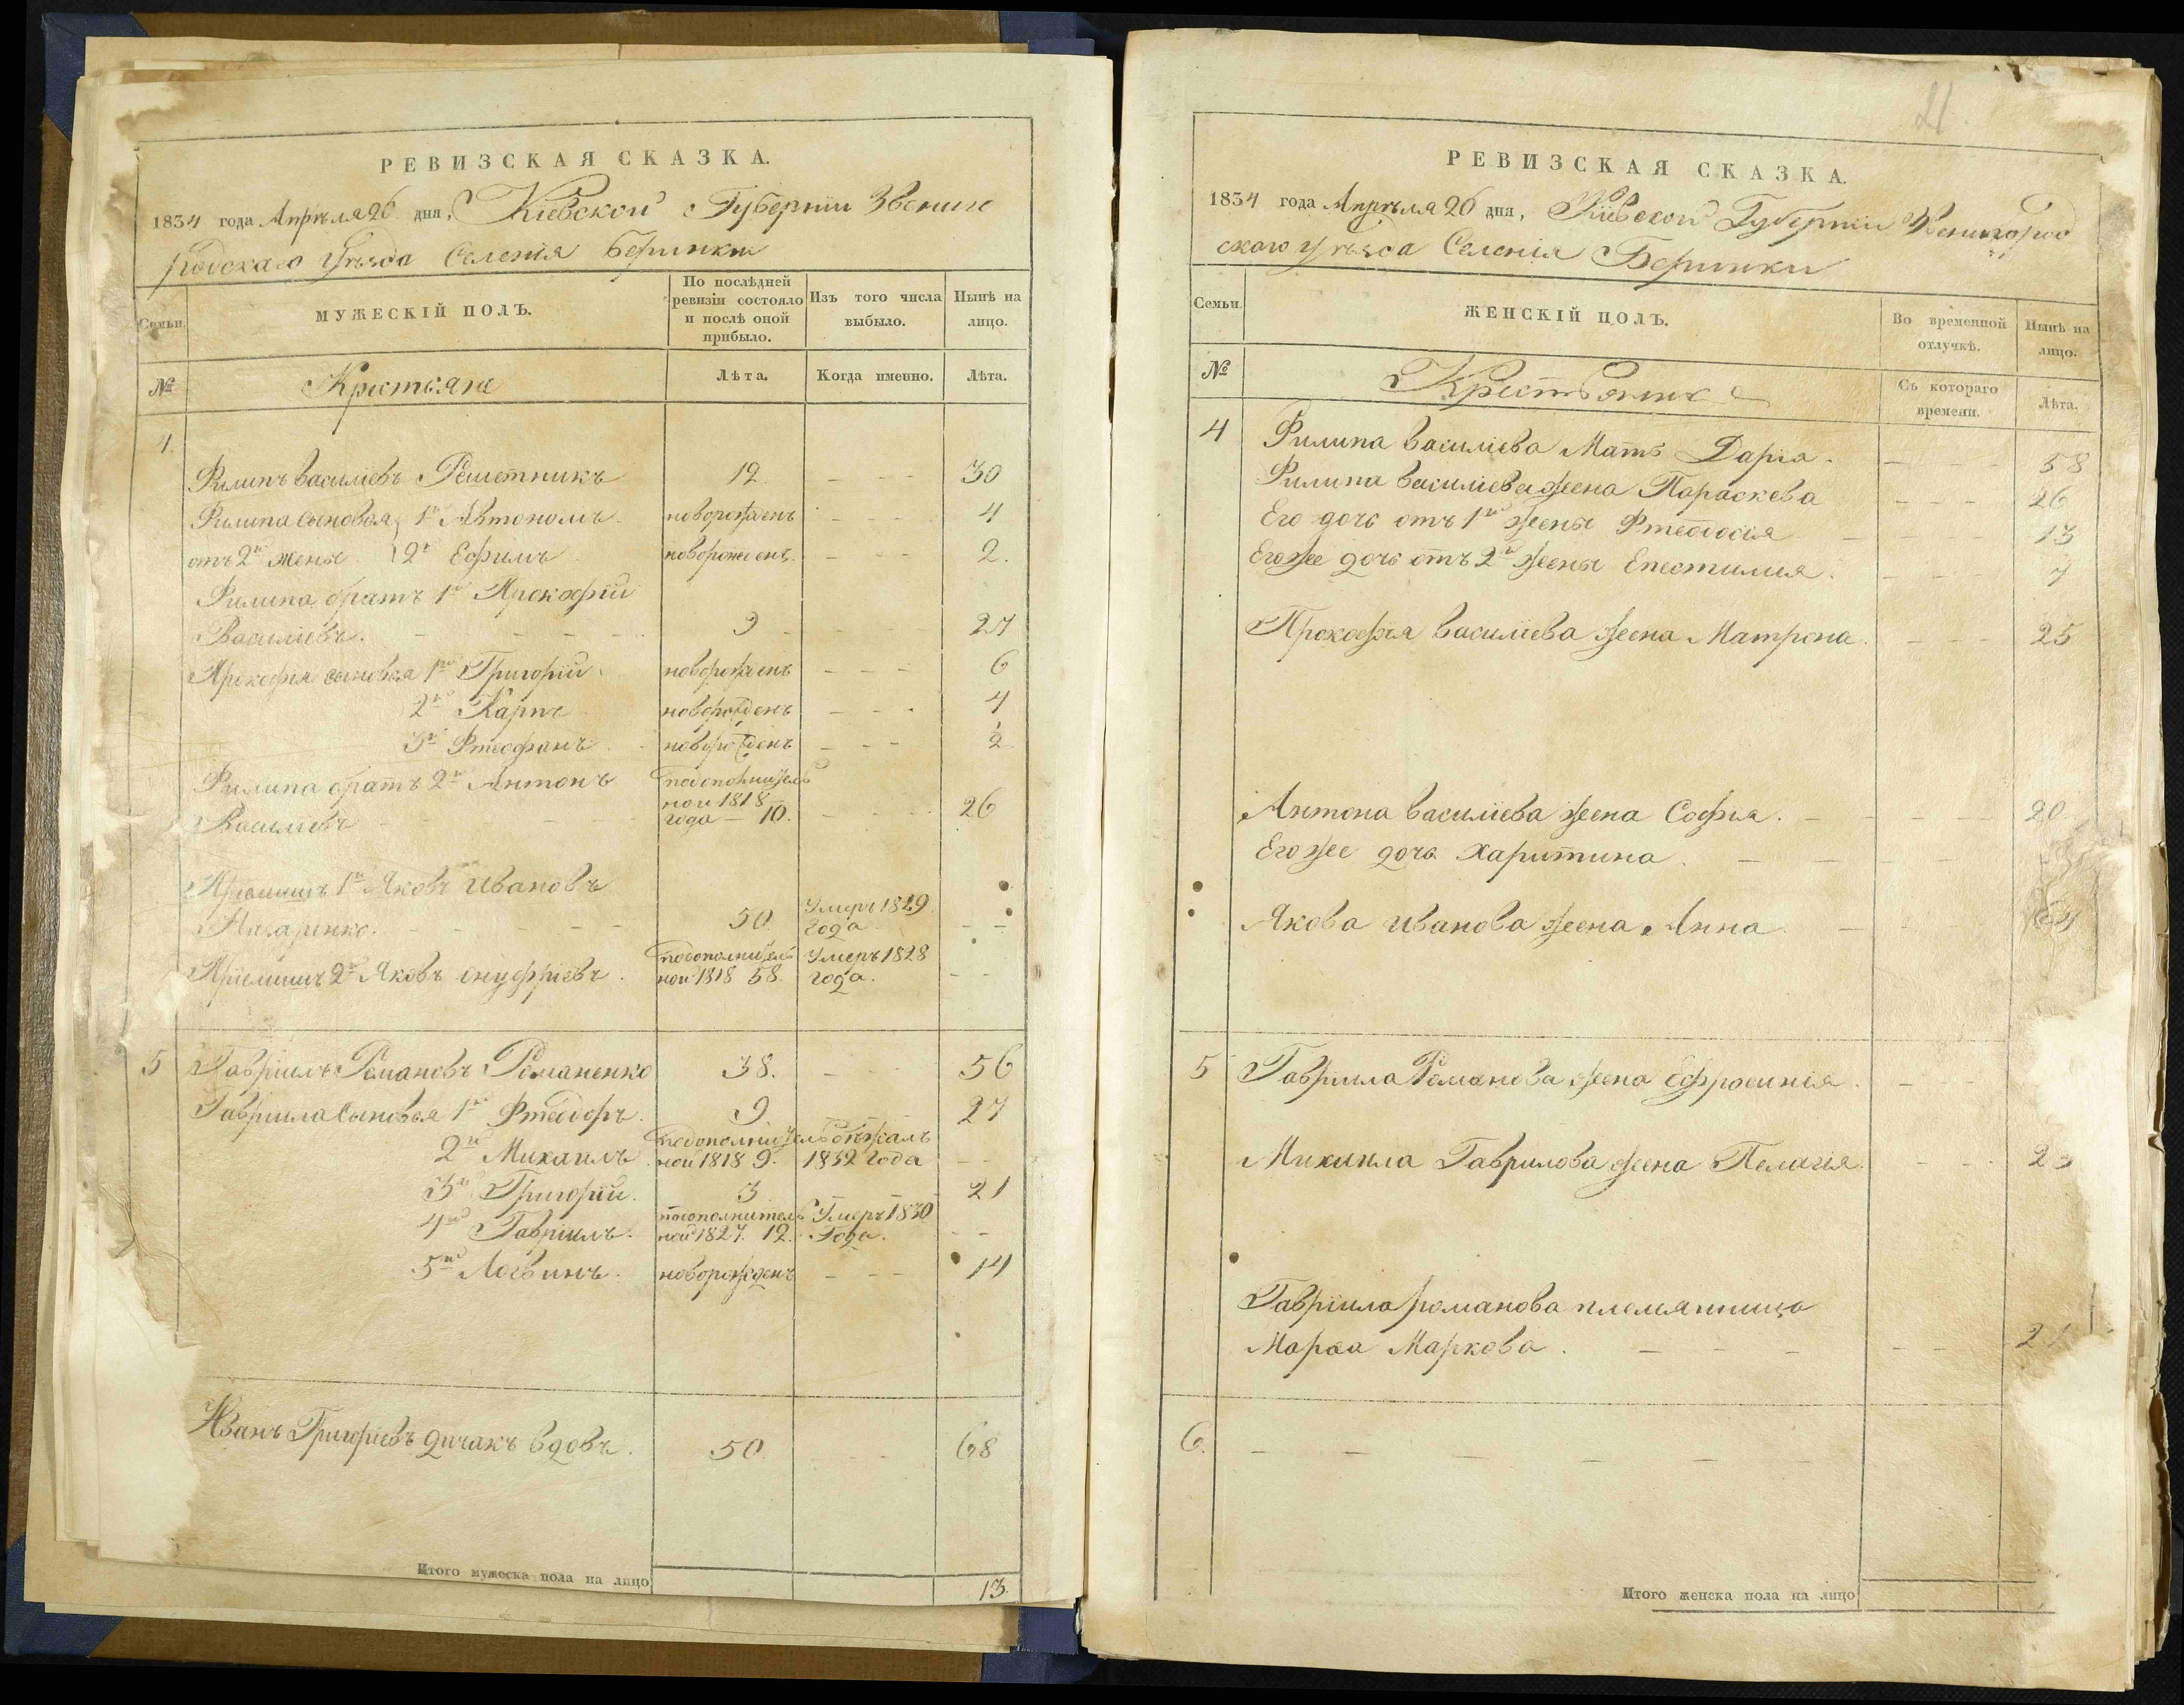 РЕВИЗСКАЯ СКАЗКА.
1834 года Апрѣля 26 дня, Кіевской Губерніи Звениго
родскаго Уѣзда Селенія Беринки
Семьи.
МУЖЕСКІЙ ПОЛЪ.
По послѣдней ревизіи состояло и послѣ оной прибыло.
Изъ того числа выбыло.
Нынѣ на лицо.
№ Крестьяне Лѣта. Когда именно. Лѣта.
4.
Филипъ Василіевъ Решетникъ 12 - - - 30
Филипа сыновья 1й Автономъ новорожденъ - - - 4
отъ 2й жены 2й Ефимъ новорожденъ - - - 2.
Филипа братъ 1й Прокофій
Василіевъ. 9 - - - 27
Прокофія сыновья 1й Григорій новорожденъ - - - 6
2й Карпъ новорожденъ - - - 4
3й Фтеофанъ новорожденъ - - - ½
Филипа братъ 2й Антонъ подополнитель
ной 1818
Василіевъ года - 10. - - - 26
Пріемишъ 1й Яковъ Ивановъ
50. Умеръ 1829 года - -
Пріемишъ 2й Яковъ Онуфріевъ. подополнитель
ной 1818 58. Умеръ 1828 года. - -
5 Гавріилъ Романовъ Романенко 38. - - - 56
Гавріила сыновья 1й Фтеодоръ. 9. 27
2й Михаилъ подополнитель
ной 1818 9. бѣжалъ 1832 года - -
3й Григорій. 3 21
4й Гавріилъ. подополнитель
ной 1827. 12. Умеръ 1830 Года. - -
5й Логвинъ. новорожденъ - - - 14
Иванъ Григоріевъ Дичакъ вдовъ. 50. - - - 68
Итого мужеска пола на лицо 13.
21.
РЕВИЗСКАЯ СКАЗКА.
1834 года Апрѣля 26 дня, Кіевской Губерніи Звенигород
скаго Уѣзда Селенія Беринки
Семьи.
ЖЕНСКІЙ ПОЛЪ.
Во временной отлучкѣ.
Нынѣ на лицо.
№ Крестьянки
Съ котораго времени.
Лѣта.
4 Филипа Василіева Мать Дарія. - - - 58
Филипа Василіева жена Параскева - - - 26
Его дочь отъ 1й жены Фтеодосія - - - 13
Его же дочь отъ 2й жены Епестимия. - - - 7
Прокофія Василіева жена Матрона. - - - 25
Антона Василіева жена Софія. - - - 20.
Его же дочь Харитина. - -
Якова Иванова жена Анна. - - 64
5 Гавріила Романова жена Ефросинія. -
Михаила Гаврилова жена Пелагія. - - - 23
Гавріила романова племянница
Марѳа Маркова. - - - - -
6. - - - - - -
Итого женска пола на лицо